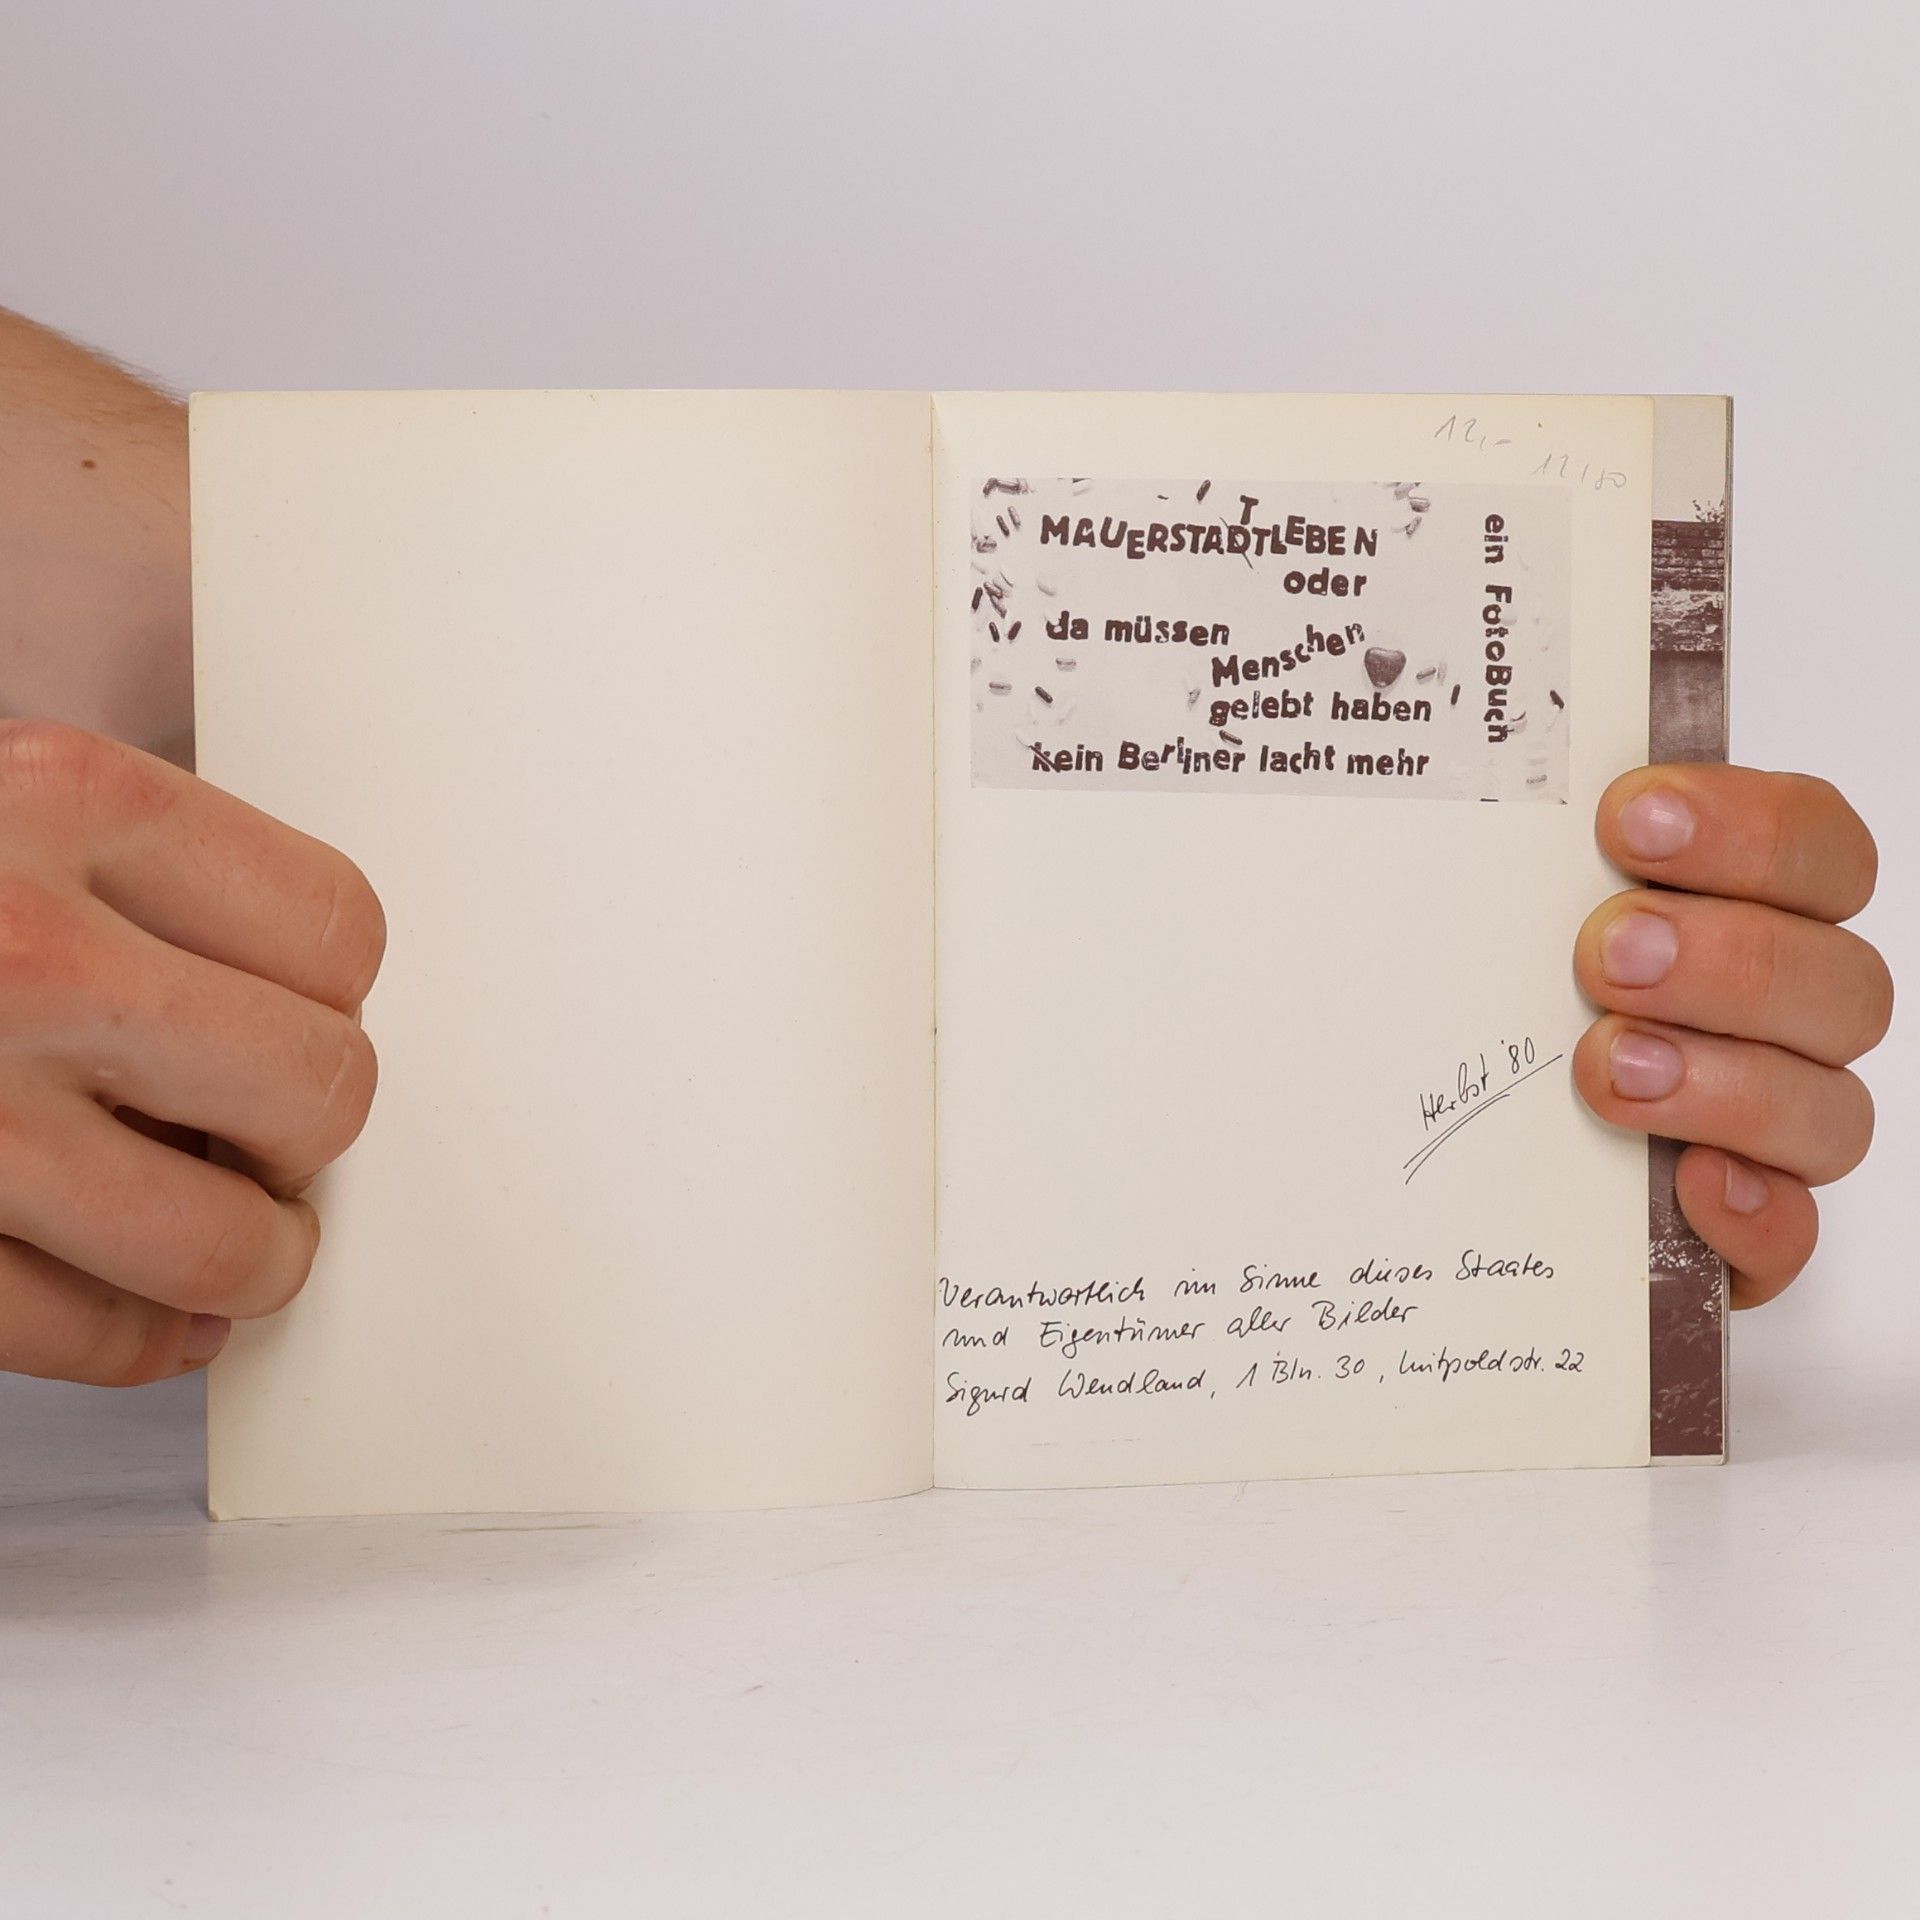 12,-
12/80
T
MAUERSTADTLEBEN
oder
da müssen
Menschen
gelebt haben
kein Berliner lacht mehr
ein FotoBuch
Herbst '80
Verantwortlich im Sinne dieses Staates
und Eigentümer aller Bilder
Sigurd Wendland, 1 Bln. 30, Luitpoldstr. 22